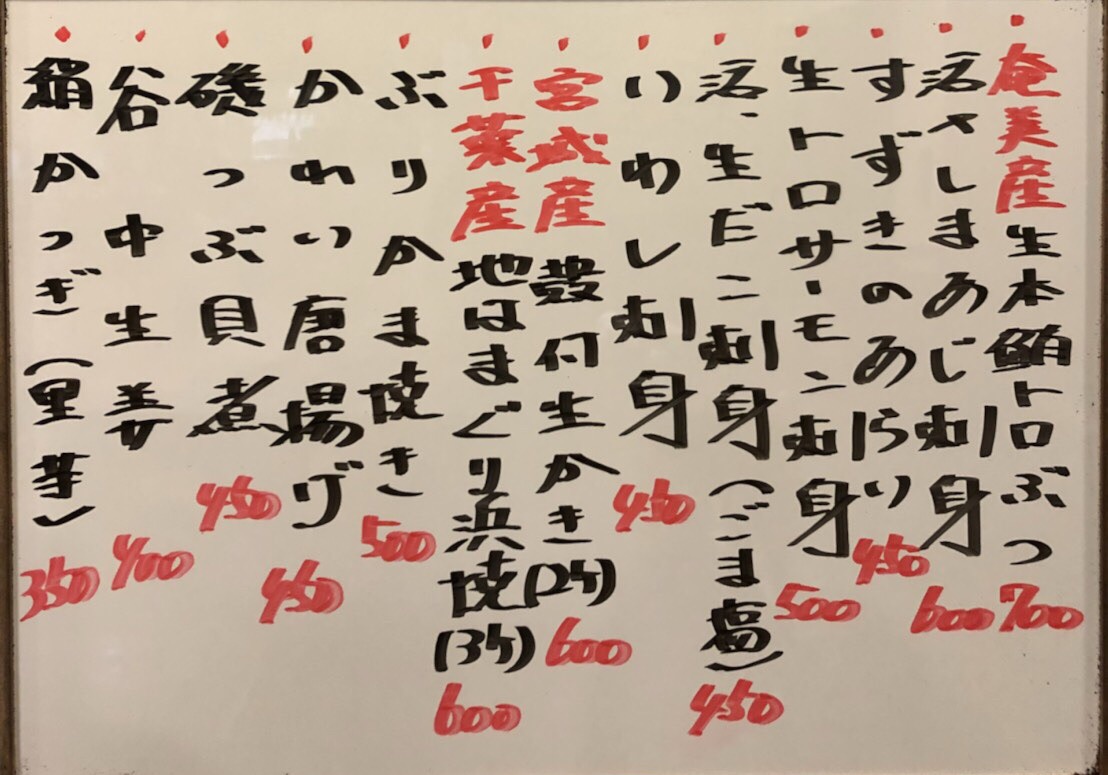 奄美産生本鮪トロぶつ 700
活〆しまあじ刺身 600
すずきのあらい 450
生トロサーモン刺身 500
活、生だこ刺身(ごま塩) 450
いわし刺身 450
宮城産 殻付生かき(2ケ) 600
千葉産 地はまぐり浜焼(3ケ) 600
ぶりかま焼き 500
かれい唐揚げ 450
磯つぶ貝煮 450
谷中生姜 400
絹かつぎ(里芋) 350